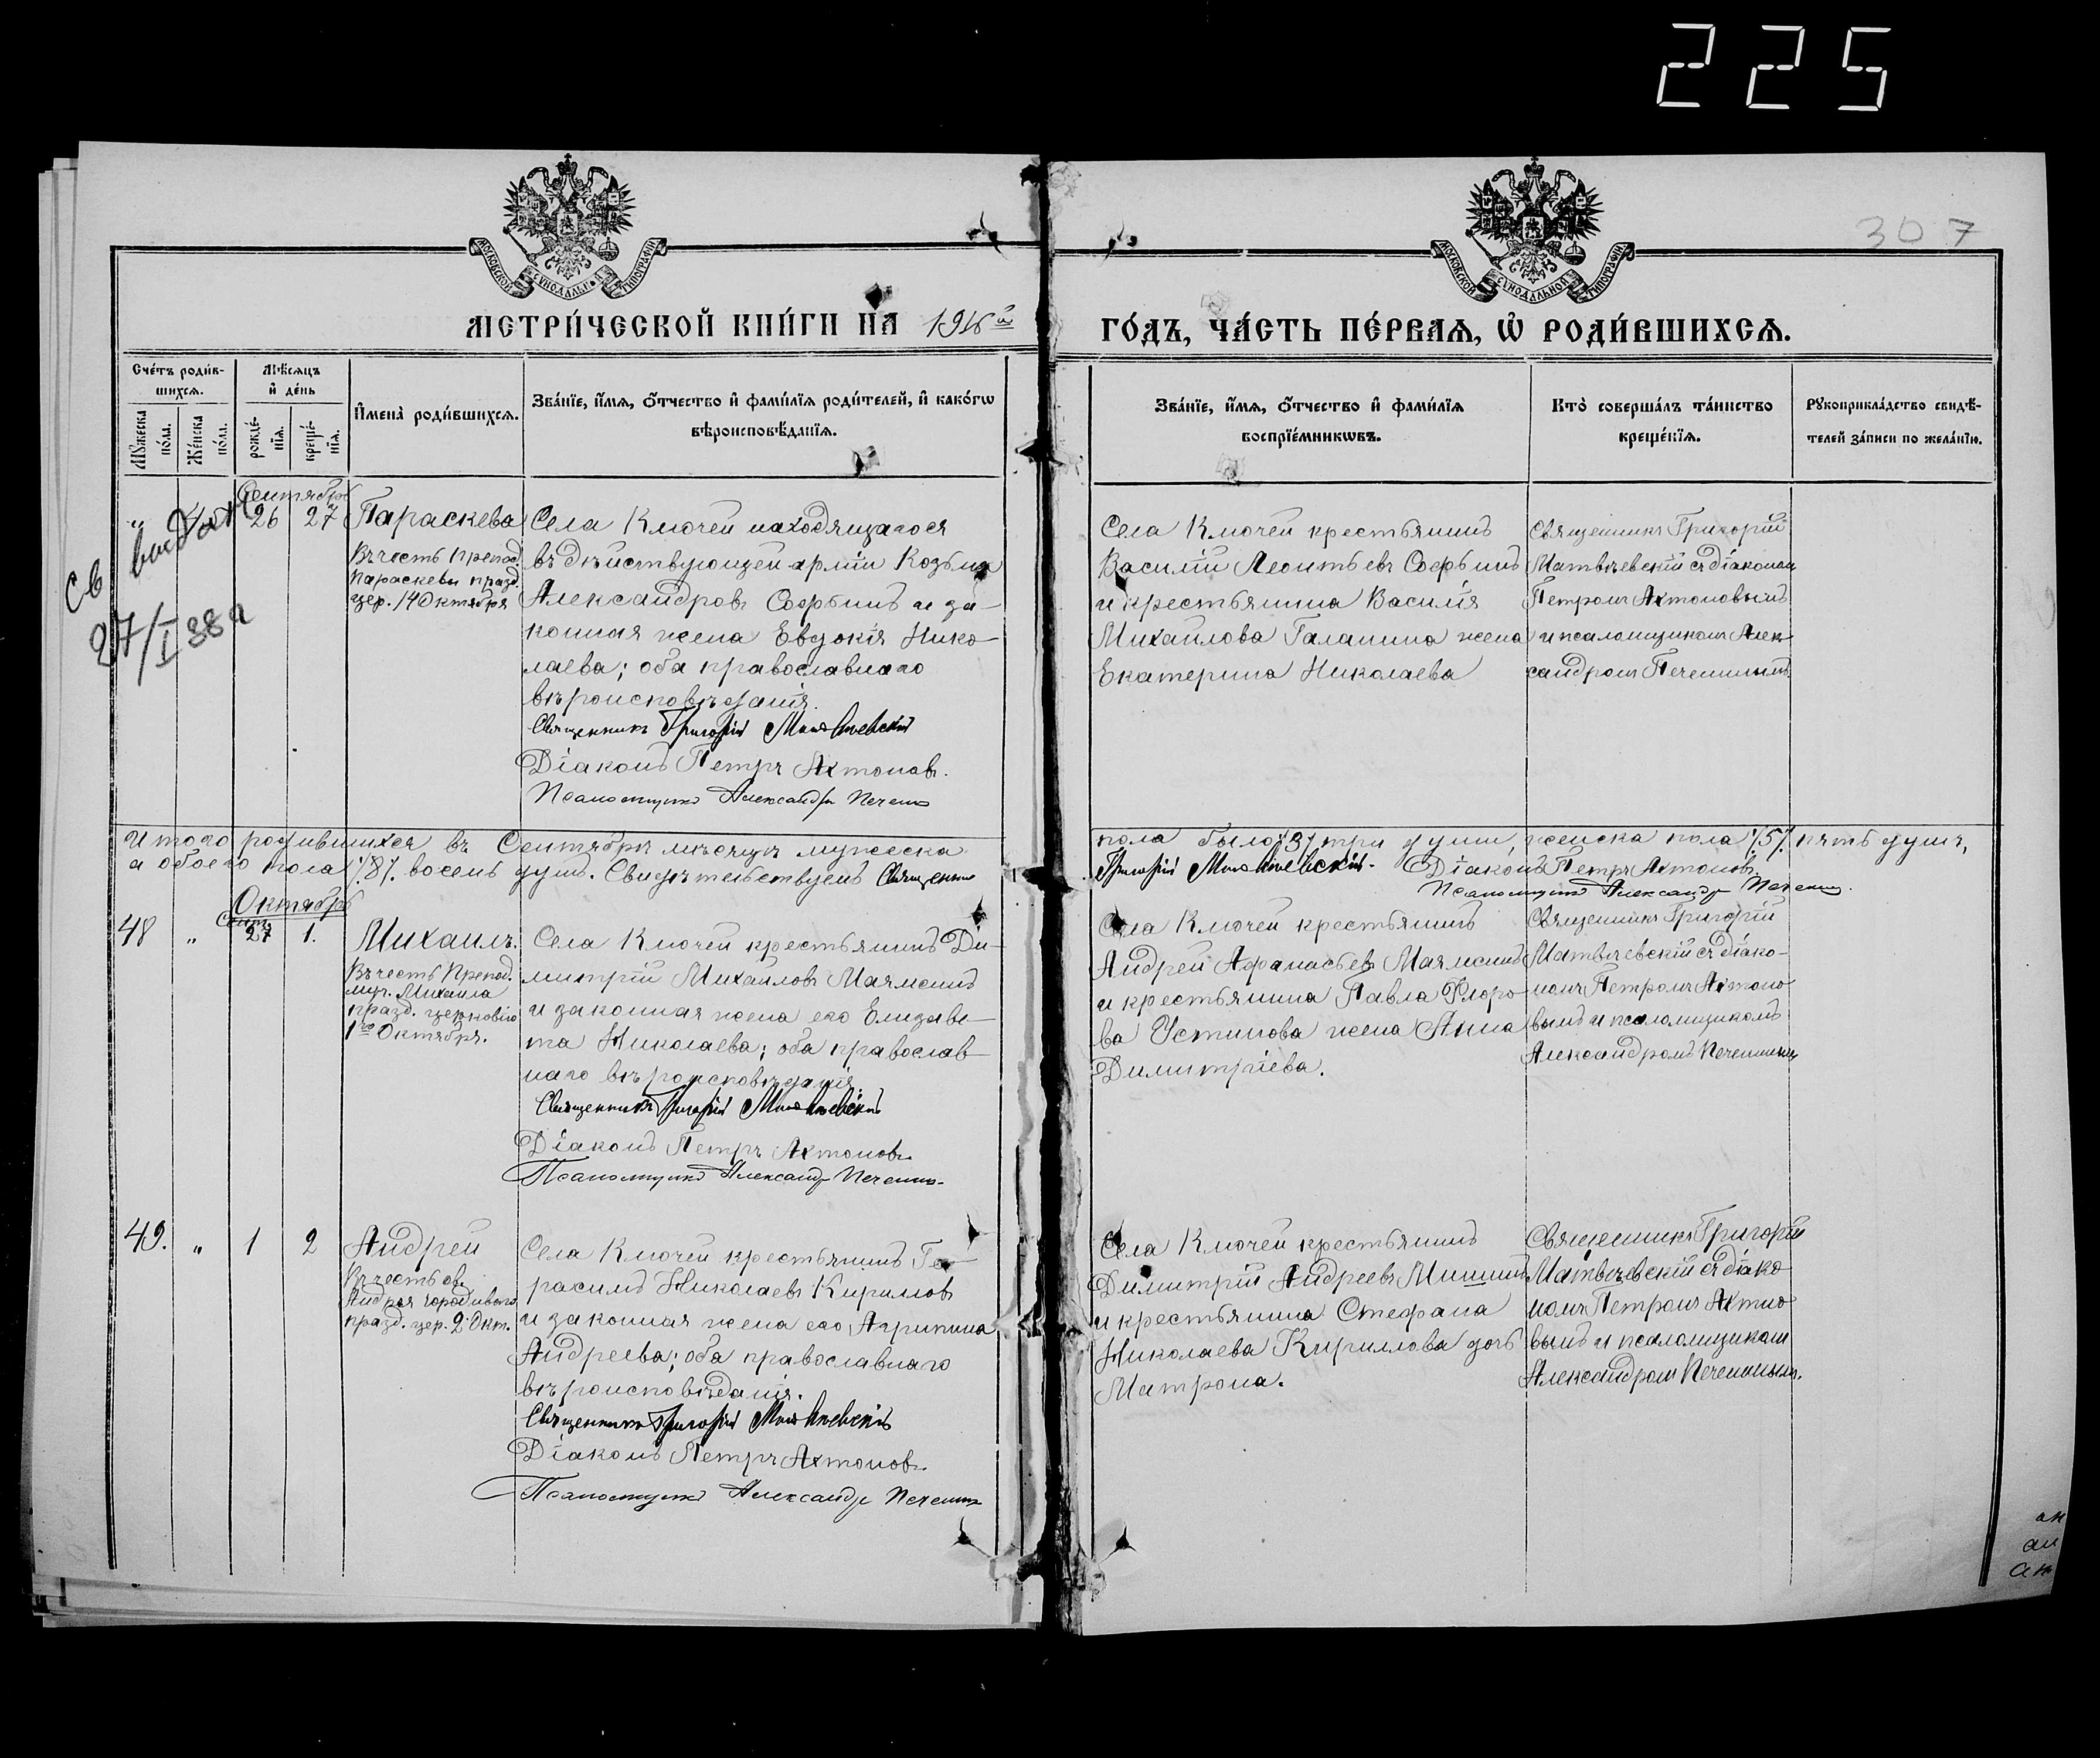 225
307
МОСКОВСКОЙ СѴНОДАЛЬНОЙ ТИПОГРАФІИ
МОСКОВСКОЙ СѴНОДАЛЬНОЙ ТИПОГРАФІИ
МЕТРИ́ЧЕСКОЙ КНИ́ГИ НА 1916й
ГО́ДЪ, ЧА́СТЬ ПЕ́РВАЯ, Ѿ РОДИ́ВШИХСЯ.
Сче́тъ роди́в-
шихся.
Мѣ́сяцъ
и҆ де́нь
Мꙋ́жеска
по́ла.
Же́нска
по́ла.
рожде́-
нїя.
креще́-
нїя.
И҆мена̀ роди́вшихся.
Зва́нїе, и҆́мя, ѻ҆́тчество и҆ фами́лїя роди́телей, и҆ како́гѡ
вѣроисповѣ́данїя.
Зва́нїе, и҆́мя, ѻ҆́тчество и҆ фами́лїя
воспрїе́мникѡвъ.
Кто̀ соверша́лъ та́инство
креще́нїя.
Рꙋкоприкла́дство свидѣ́-
телей за́писи по жела́нїю.
Св
27/I 38 г
Сентябрь
26 27
Параскева
Въ честь препод.
Параскевы празд.
цер. 14 Октября
Села Ключей находящагося
въ дѣйствующей арміи Козьма
Александровъ Софьинъ и за-
конная жена Евдокія Нико-
лаева; оба православнаго
вѣроисповѣданія.
Священникъ Григорій Матвѣевскій
Діаконъ Петръ Актоновъ.
Псаломщикъ Александръ Печенинъ
Села Ключей крестьянинъ
Василій Леонтьевъ Софьинъ
и крестьянина Василія
Михайлова Галанина жена
Екатерина Николаева
Священникъ Григорій
Матвѣевскій съ діакономъ
Петромъ Актоновымъ
и псаломщикомъ Алек-
сандромъ Печенинымъ
Итого родившихся въ Сентябрѣ мѣсяцѣ мужеска
пола было /3/ три души, женска пола /5/ пять душъ,
а обоего пола /8/ восемь душъ. Свидѣтельствуемъ Священникъ
Григорій Матвѣевскій. Діаконъ Петръ Актоновъ.
Псаломщикъ Александръ Печенинъ.
Октябрь
Сент.
48 „ 27 1.
Михаилъ.
Въ честь Препод.
муч. Михаила
празд. церковію
1го Октября.
Села Ключей крестьянинъ Ди-
митрій Михайловъ Маямсинъ
и законная жена его Елизаве-
та Николаева; оба православ-
наго вѣроисповѣданія
Священникъ Григорій Матвѣевскій
Діаконъ Петръ Актоновъ.
Псаломщикъ Александръ Печенинъ.
Села Ключей крестьянинъ
Андрей Афанасьевъ Маямсинъ
и крестьянина Павла Флоро-
ва Устинова жена Анна
Димитріева.
Священникъ Григорій
Матвѣевскій съ діако-
номъ Петромъ Актоно-
вымъ и псаломщикомъ
Александромъ Печенинымъ
49. „ 1 2
Андрей
Въ честь св.
Андрея юродиваго
празд. цер. 2 Окт.
Села Ключей крестьянинъ Ге-
расимъ Николаевъ Кириловъ
и законная жена его Агрипина
Андреева; оба православнаго
вѣроисповѣданія.
Священникъ Григорій Матвѣевскій
Діаконъ Петръ Актоновъ.
Псаломщикъ Александръ Печенинъ
Села Ключей крестьянинъ
Димитрій Андреевъ Мишинъ
и крестьянина Стефана
Николаева Кириллова дочь
Матрона.
Священникъ Григорій
Матвѣевскій съ діако-
номъ Петромъ Актоно-
вымъ и псаломщикомъ
Александромъ Печенинымъ.